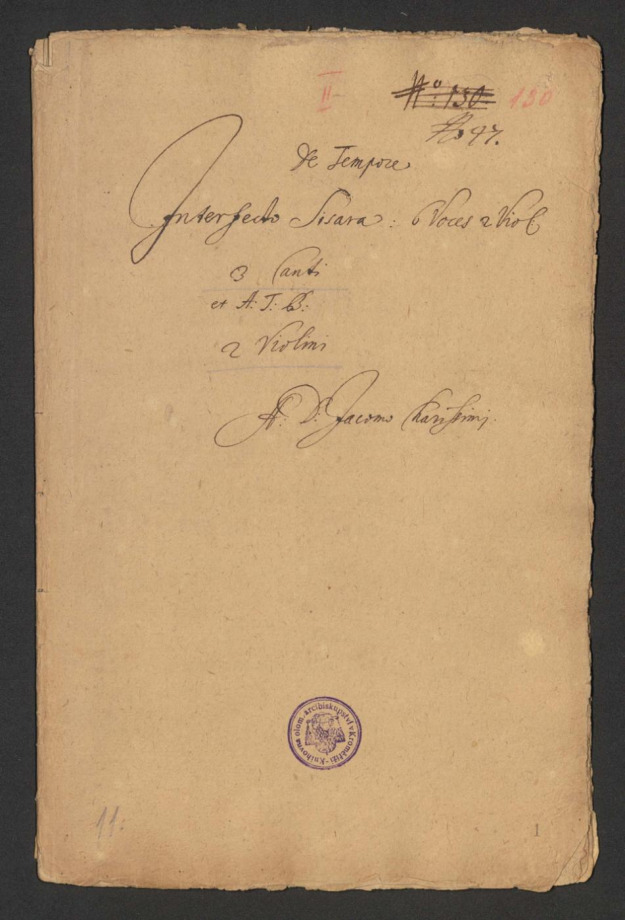 II
Nº: 130. 130
No 97.
De Tempore
Interfecto Sisara: 6 Voces 2 Viol
3 Canti
et A: T: B:
2 Violini
A: D: Jacomo Charissimi
Knihovna olom. arcibiskupství v Kroměříži
11.
1